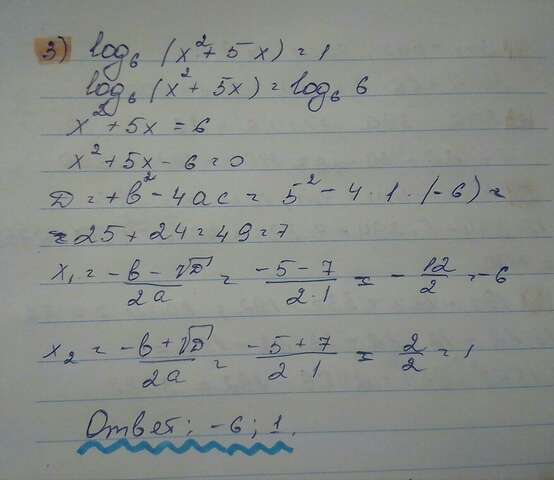 3) log₆ (x² + 5x) = 1
log₆ (x² + 5x) = log₆ 6
x² + 5x = 6
x² + 5x - 6 = 0
D = + b² - 4ac = 5² - 4 · 1 · (-6) =
= 25 + 24 = 49 = 7
x₁ = (-b - √D)/(2a) = (-5 - 7)/(2 · 1) = - 12/2 = -6
x₂ = (-b + √D)/(2a) = (-5 + 7)/(2 · 1) = 2/2 = 1
Ответ: -6; 1.